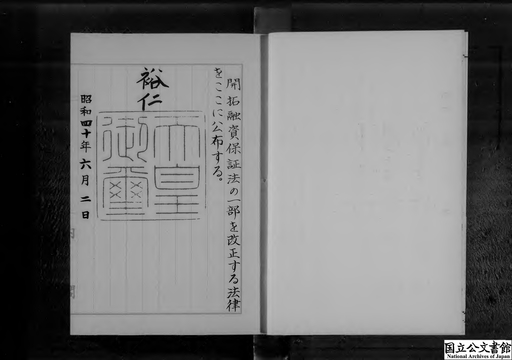 開拓融資保証法の一部を改正する法律
をここに公布する。
裕仁
天皇
御璽
昭和四十年六月二日
国立公文書館
National Archives of Japan